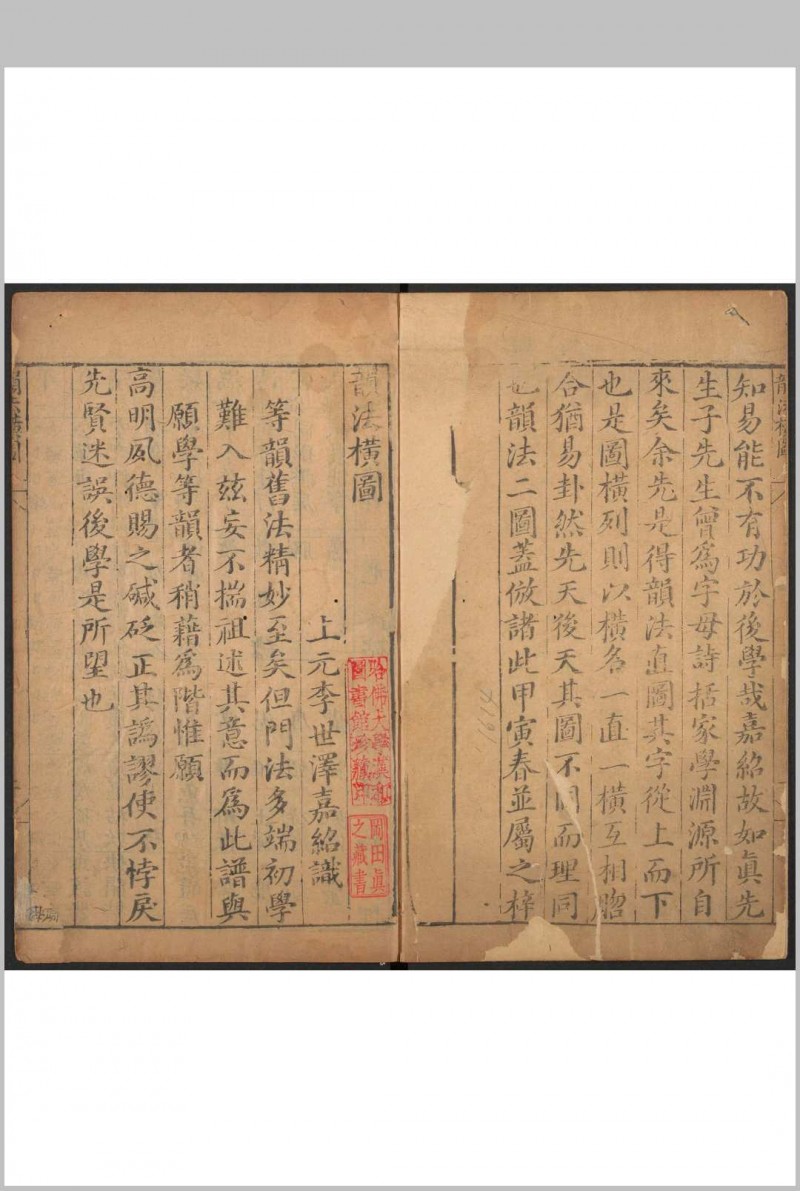 知易能不有功於後學哉嘉紹故如眞先
生子先生曾爲字母詩括家學淵源所自
來矣余先是得韻法直圖其字從上而下
也是圖橫列則以橫名一直一橫互相脗
合猶易卦然先天後天其圖不同而理同
也韻法二圖蓋倣諸此甲寅春並屬之梓
韻法橫圖
上元李世澤嘉紹識
等韻舊法精妙至矣但門法多端初學
難入玆妄不揣祖述其意而爲此譜與
願學等韻者稍藉爲階惟願
高明夙德賜之鍼砭正其譌謬使不悖戾
先賢迷誤後學是所望也
哈佛大學漢和
圖書館珍藏印
岡田眞
之藏書
韻法橫圖